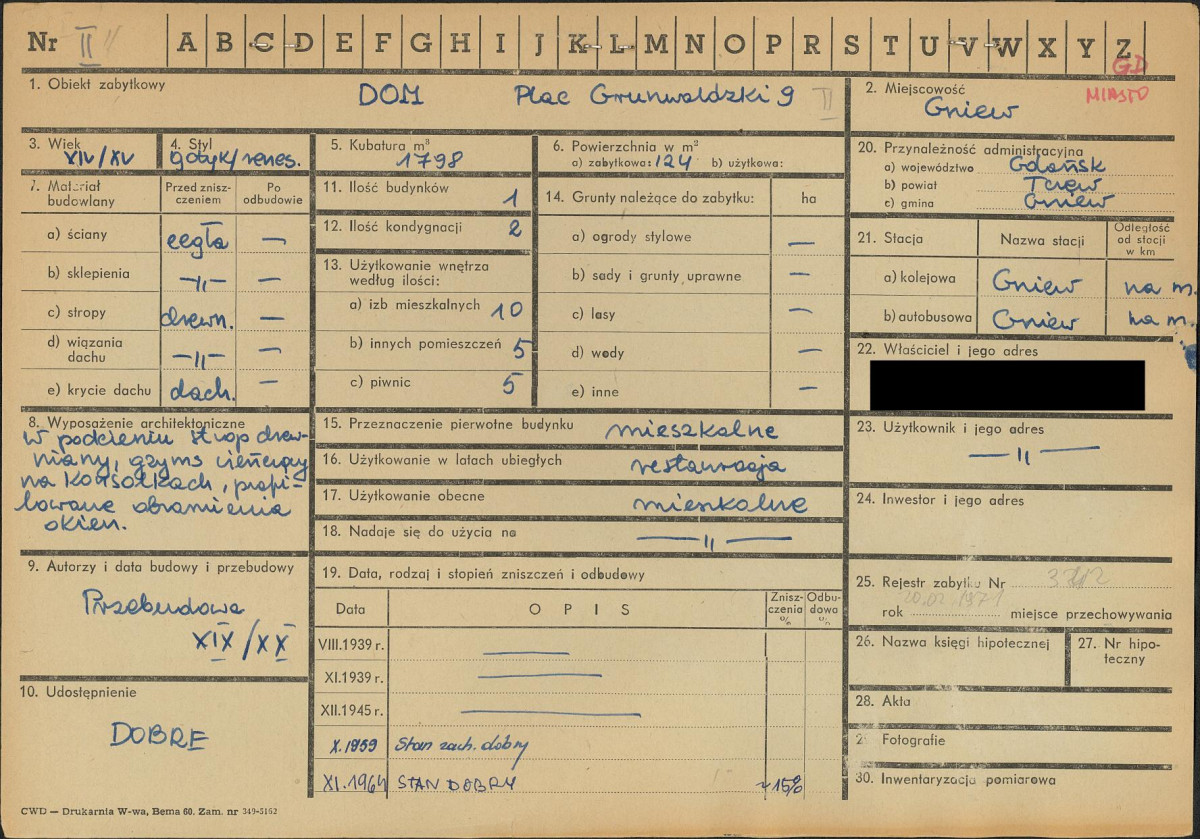 Nr II A B C D E F G H I J K L M N O P R S T U V W X Y Z
GD
MIASTO
1. Obiekt zabytkowy
DOM Plac Grunwaldzki 9 II
2. Miejscowość
Gniew
3. Wiek
XIV/XV
4. Styl
gotyk/renes.
5. Kubatura m³
1798
6. Powierzchnia w m²
a) zabytkowa: 124 b) użytkowa:
20. Przynależność administracyjna
a) województwo Gdańsk
b) powiat Tczew
c) gmina Gniew
7. Materiał budowlany
Przed zniszczeniem
Po odbudowie
a) ściany cegła —
b) sklepienia —„— —
c) stropy drewn. —
d) wiązania dachu —„— —
e) krycie dachu dach. —
11. Ilość budynków 1
12. Ilość kondygnacji 2
13. Użytkowanie wnętrza
według ilości:
a) izb mieszkalnych 10
b) innych pomieszczeń 5
c) piwnic 5
14. Grunty należące do zabytku: ha
a) ogrody stylowe —
b) sady i grunty uprawne —
c) lasy —
d) wody —
e) inne —
21. Stacja
Nazwa stacji
Odległość od stacji w km
a) kolejowa Gniew na m.
b) autobusowa Gniew na m.
22. Właściciel i jego adres
8. Wyposażenie architektoniczne
W podcieniu strop drew-
niany, gzyms wieńczący
na konsolkach, profi-
lowane obramienia
okien.
15. Przeznaczenie pierwotne budynku mieszkalne
16. Użytkowanie w latach ubiegłych restauracja
17. Użytkowanie obecne mieszkalne
18. Nadaje się do użycia na —„—
23. Użytkownik i jego adres
—„—
24. Inwestor i jego adres
9. Autorzy i data budowy i przebudowy
Przebudowa
XIX/XX
10. Udostępnienie
DOBRE
19. Data, rodzaj i stopień zniszczeń i odbudowy
Data OPIS Zniszczenia % Odbudowa %
VIII.1939 r. —
XI.1939 r. —
XII.1945 r. —
X.1959 Stan zach. dobry
XI.1964 STAN DOBRY ~15%
25. Rejestr zabytku Nr
rok 20.02.1971 miejsce przechowywania
26. Nazwa księgi hipotecznej
27. Nr hipoteczny
28. Akta
29. Fotografie
30. Inwentaryzacja pomiarowa
CWD — Drukarnia W-wa, Bema 60. Zam. nr 349-5162